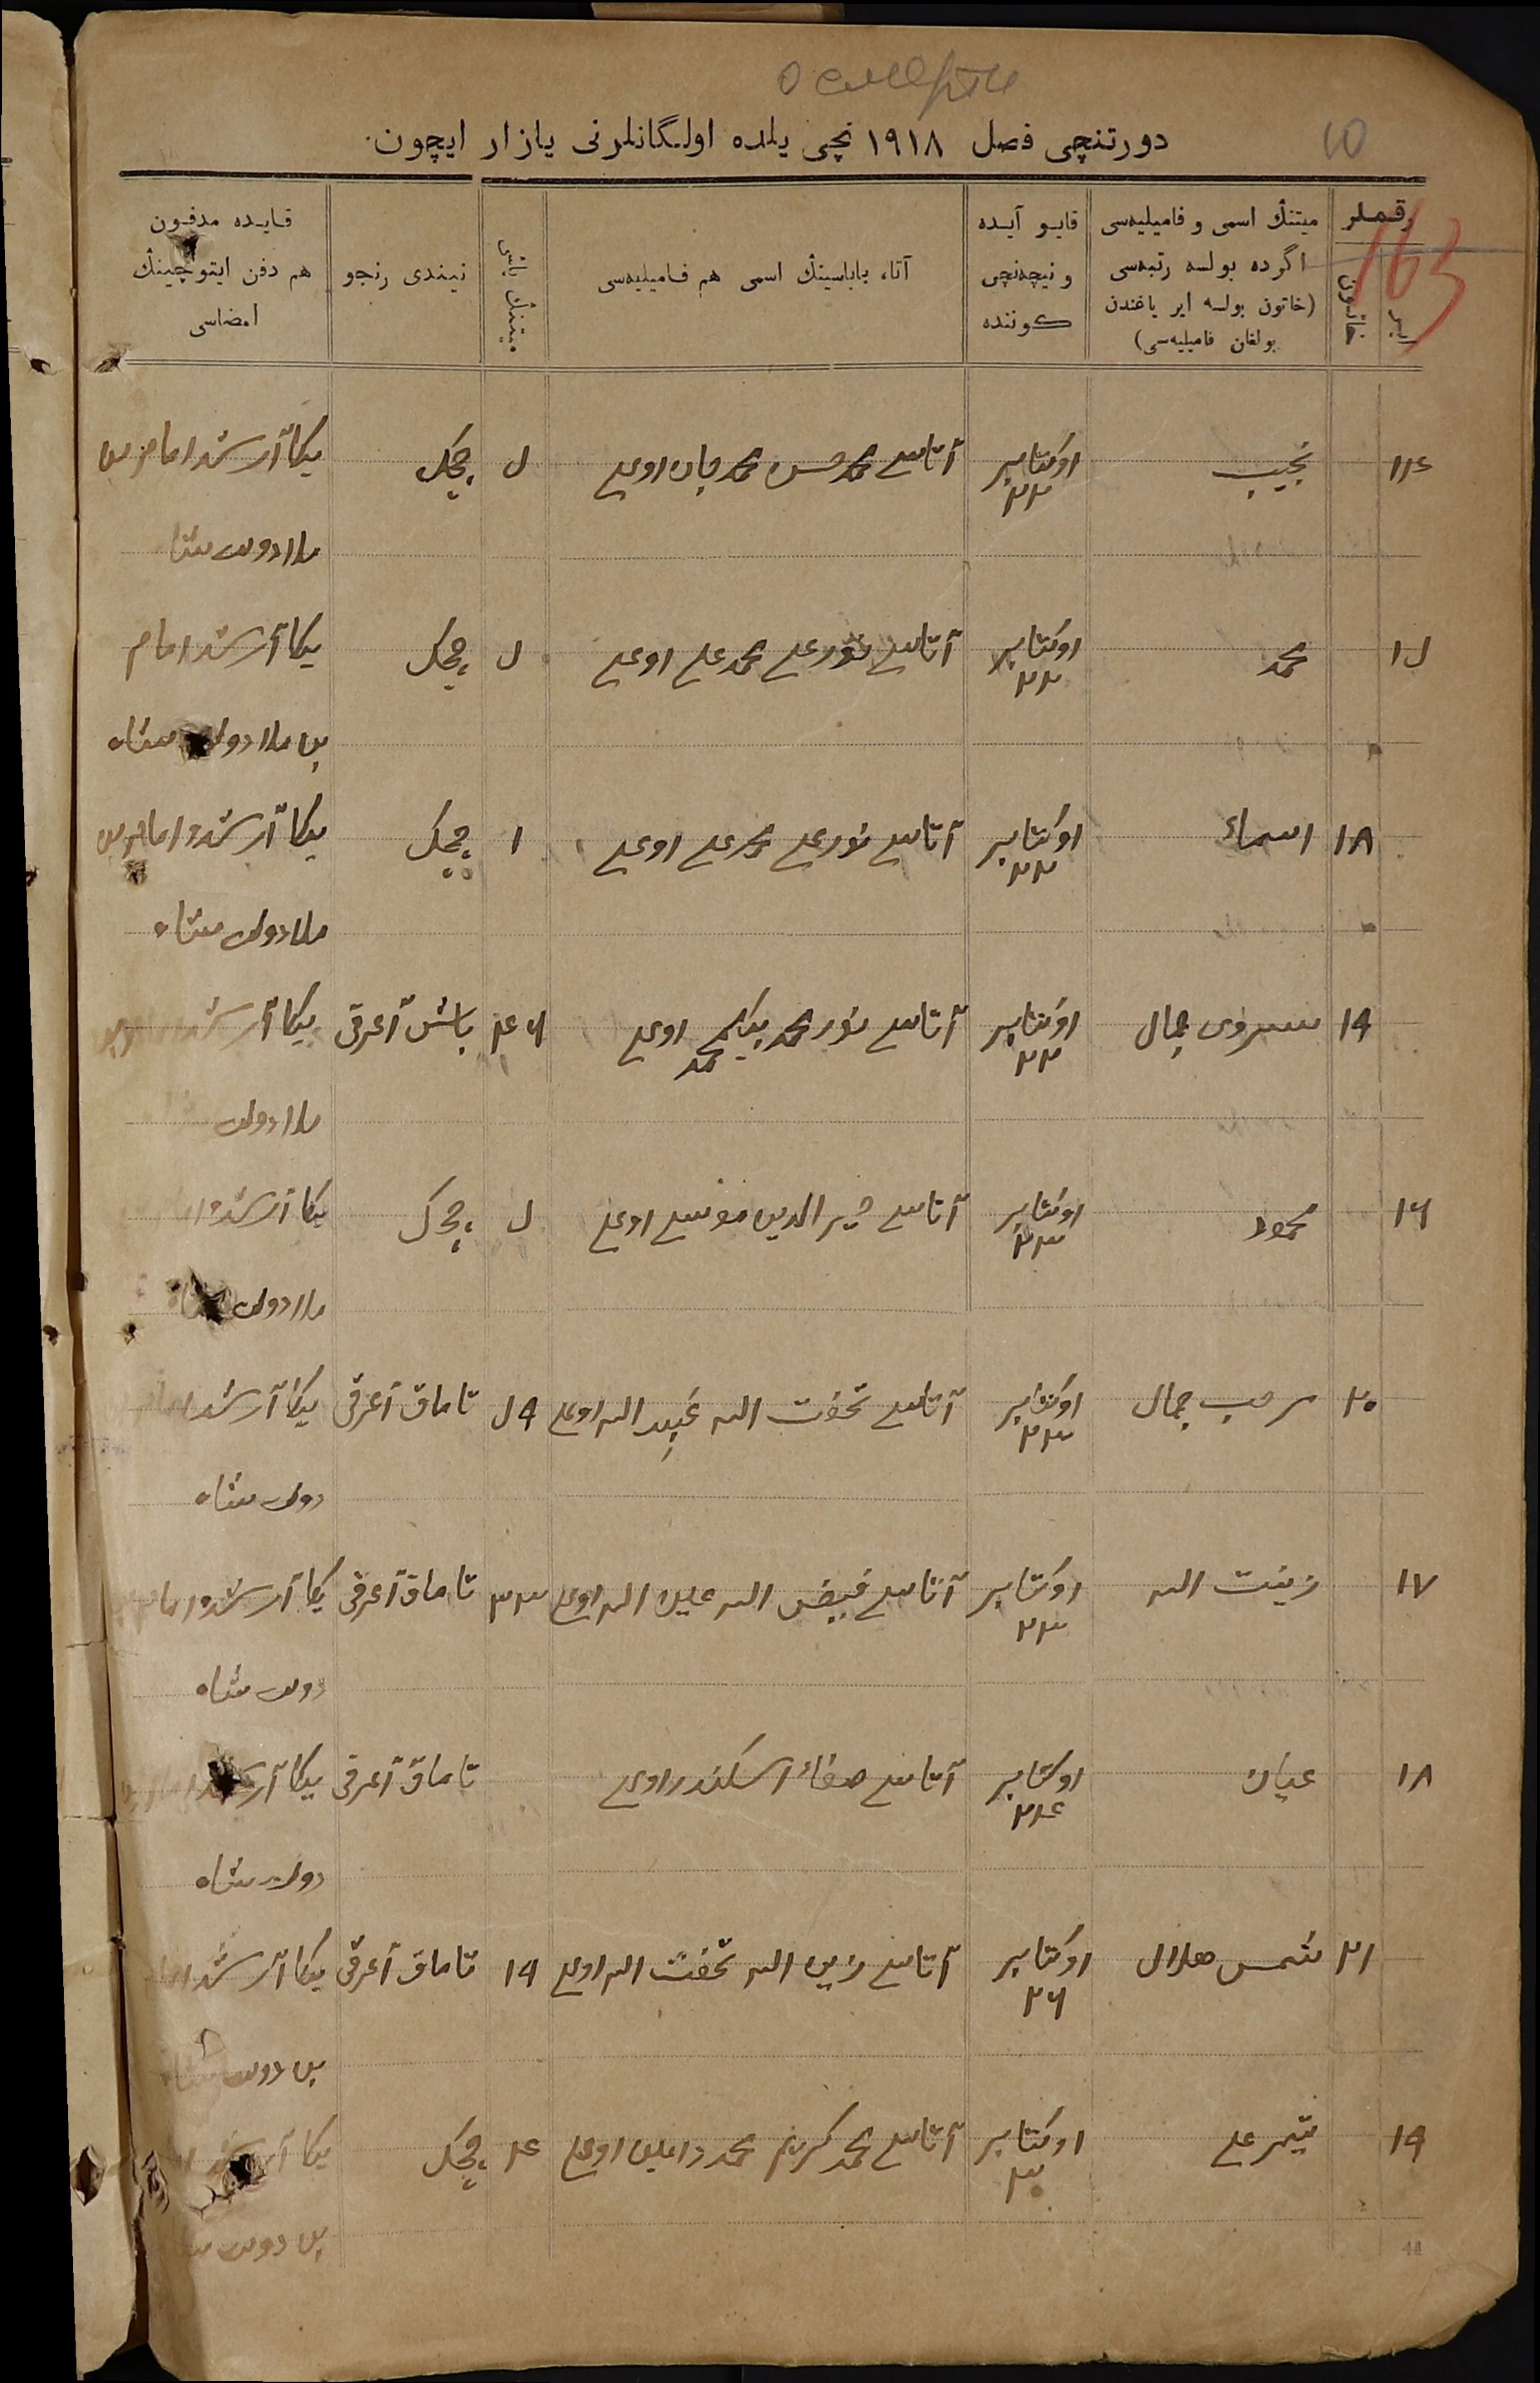 دورتنچی فصل ۱۹۱۸ نچی یلده اولگانلرنی یازار ایچون.
10
163
رقملر
ایر
خاتون
میتنڭ اسمی و فامیلیه‌سی
اگرده بولسه رتبه‌سی
(خاتون بولسه ایر یاغندن
بولغان فامیلیه‌سی)
قایو آیده
و نیچه‌نچی
کوننده
آتا، باباسینڭ اسمی هم فامیلیه‌سی
میتنڭ یاشی
نیندی رنجو
قایده مدفون
هم دفن ایتوچینڭ
امضاسی
۱۴ نجیب اوکتابر ۲۲ آتاسی محمد حسن محمد جان اوغلی ۵ چچک یکا آرشد امام بن
ملا دولت شاه
۱۵ محمد اوکتابر ۲۲ آتاسی نورعلی محمدعلی اوغلی ۵ چچک یکا آرشد امام
بن ملا دولت شاه
۱۸ اسماء اوکتابر ۲۲ آتاسی نورعلی محمدعلی اوغلی ۱ چچک یکا آرشد امام بن
ملا دولت شاه
۱۹ سروی جمال اوکتابر ۲۲ آتاسی نورمحمد بیکمحمد اوغلی ۴۶ باش آغرقی یکا آرشد
ملا دولت
۱۶ محمود اوکتابر ۲۳ آتاسی خیرالدین موسی اوغلی ۵ چچک یکا آرشد امام
ملا دولت شاه
۲۰ جمال اوکتابر ۲۳ آتاسی تحفت الله عبید الله اوغلی ۵۹ تاماق آغرقی یکا آرشد امام
دولت شاه
۱۷ زینت الله اوکتابر ۲۳ آتاسی فیض الله اوغلی ۳۳ تاماق آغرقی یکا آرشد امام
دولت شاه
۱۸ عیان اوکتابر ۲۴ آتاسی صفاء اسکندر اوغلی تاماق آغرقی یکا آرشد
دولت شاه
۲۱ شمس هلال اوکتابر ۲۶ آتاسی زین الله تحفت الله اوغلی ۱۹ تاماق آغرقی یکا آرشد امام
بن دولت شاه
۱۹ تیمرعلی اوکتابر ۳۰ آتاسی محمد کریم محمد اوغلی ۴ چچک یکا آرشد
بن دولت